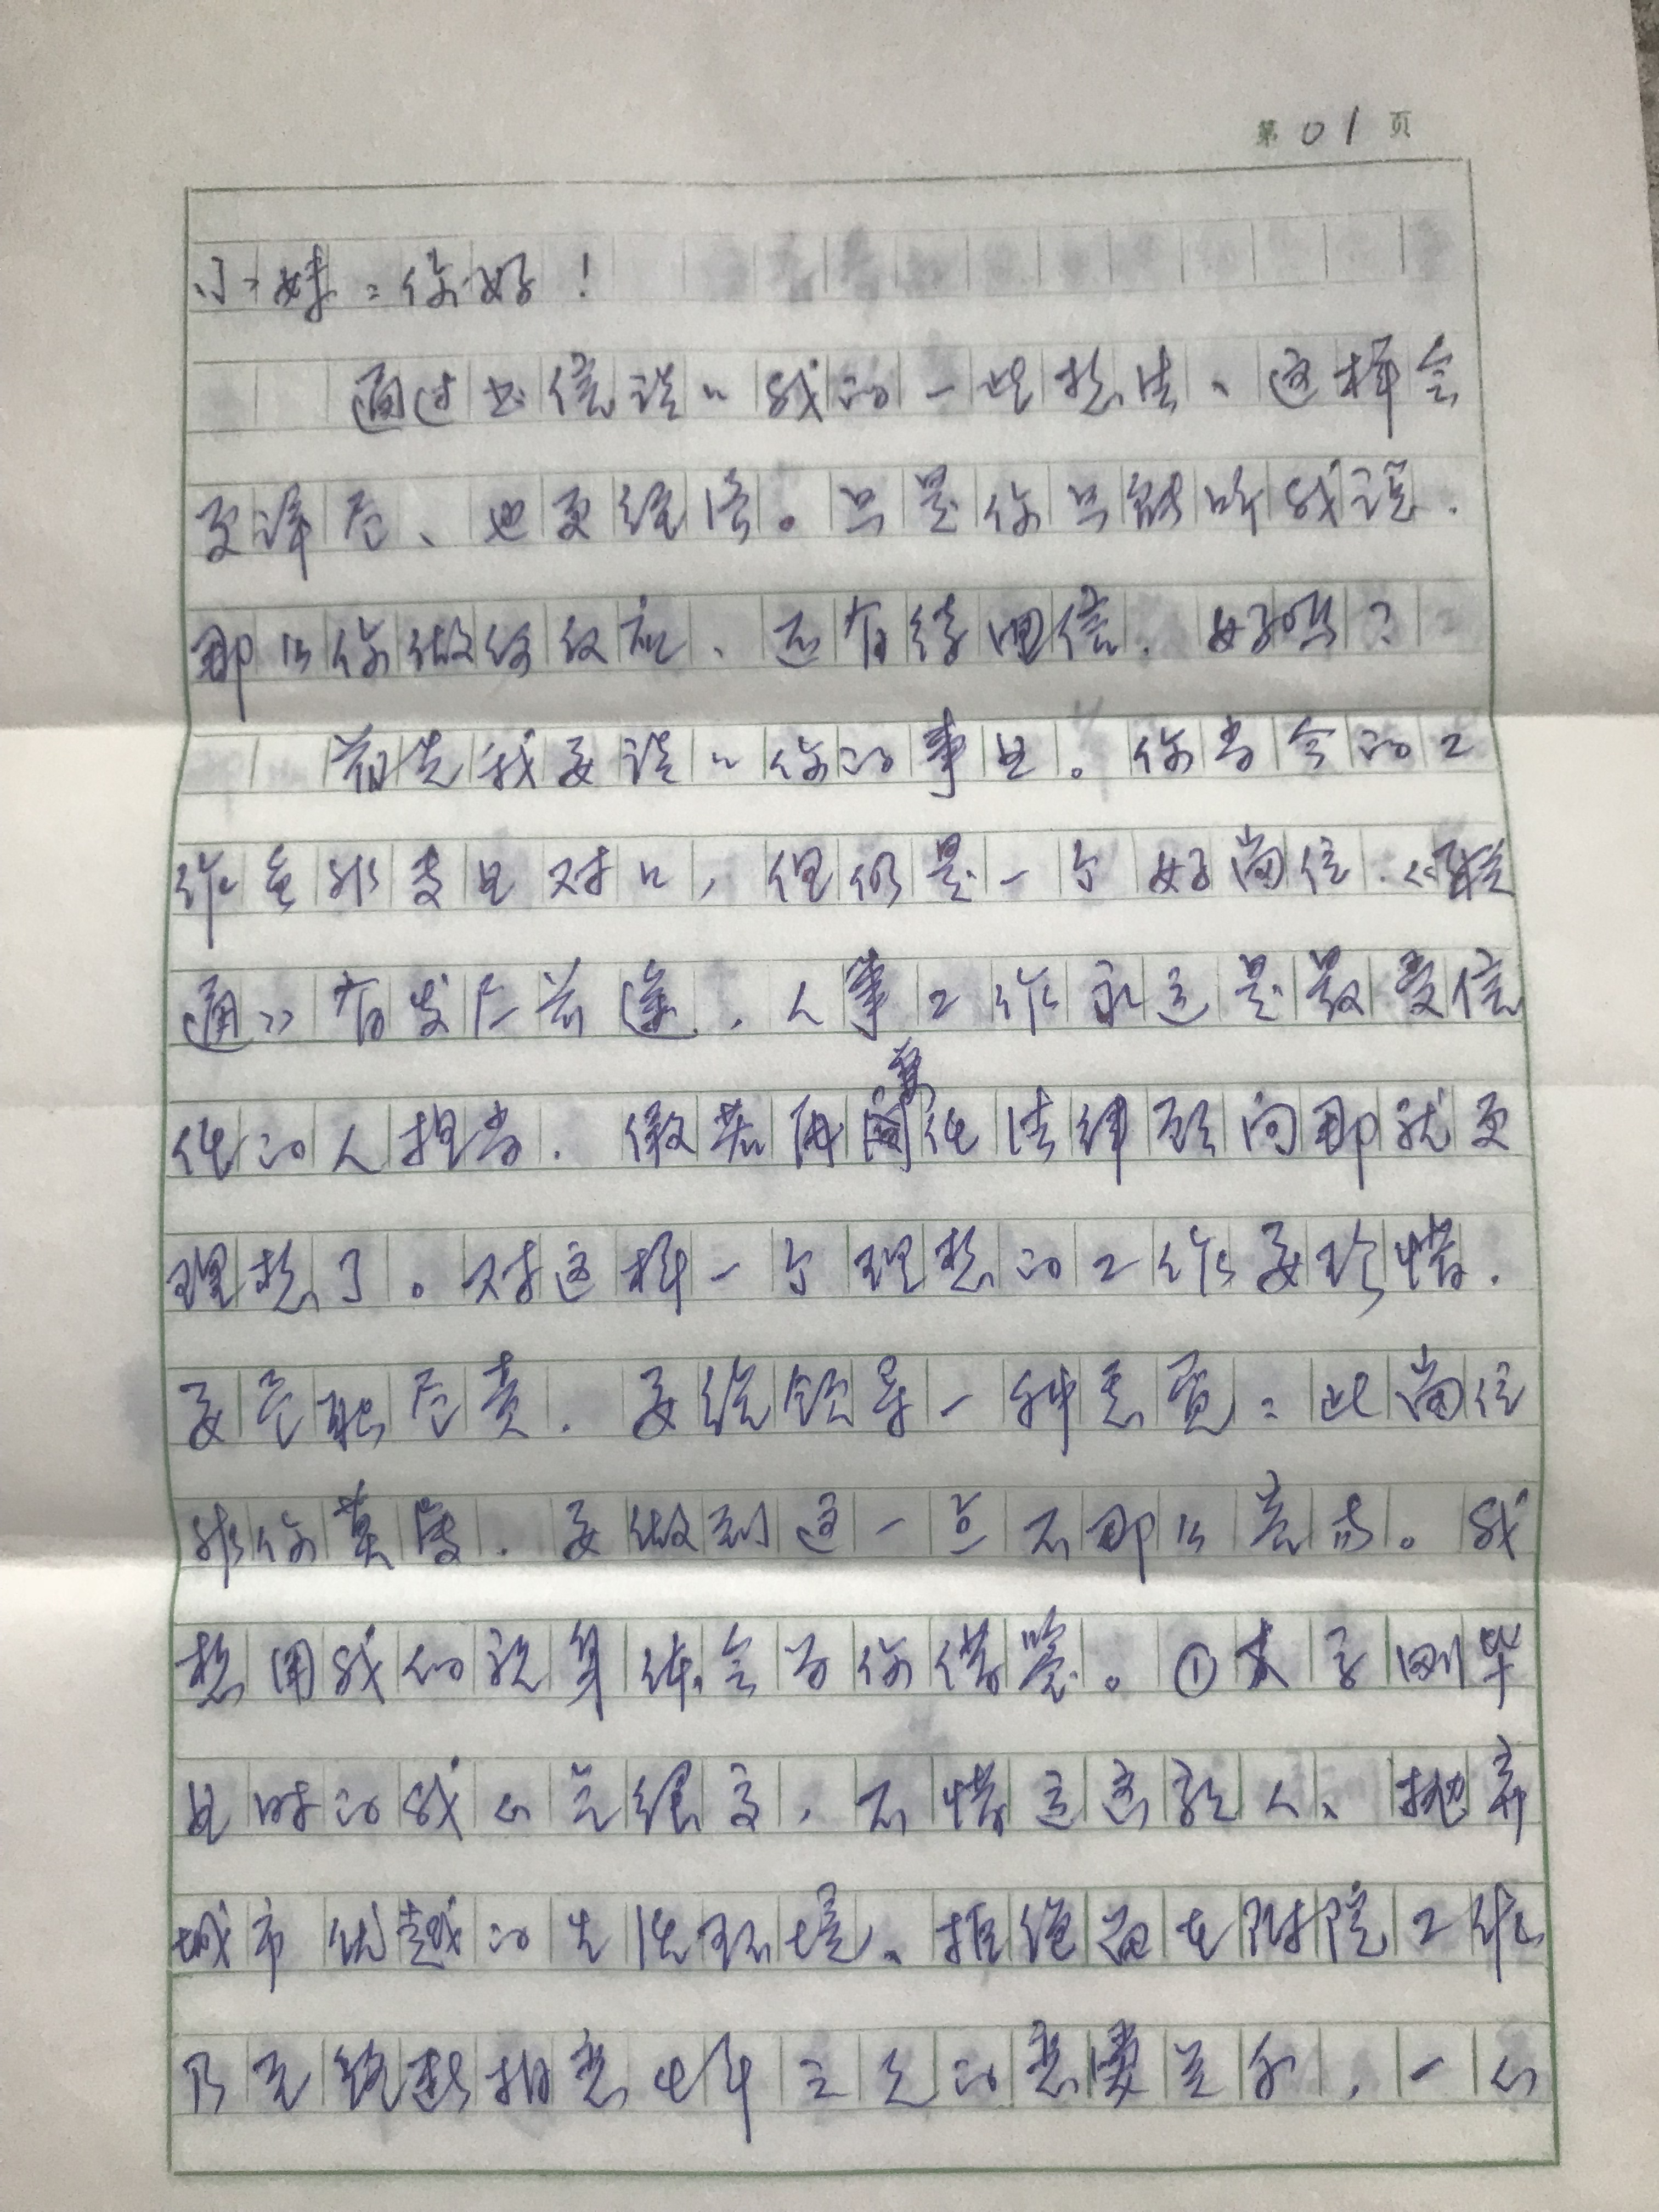 第01页
小妹：你好！
通过书信谈〃我的一些想法、这样会
更详尽、也更经济。只是你只能听我说.
那么你做何反应、还有待回信. 好吗？
首先我要谈〃你的事业。你当今的工
作虽非专业对口，但仍是一个好岗位.《联
通》有发展前途.，人事工作永远是最受信
任的人担当. 假若再要任法律顾问那就更
理想了。对这样一个理想的工作要珍惜.
要尽职尽责. 要给领导一种感觉：此岗位
非你莫属. 要做到这一点不那么容易。我
想用我的亲身体会为你借鉴。①大学刚毕
业时的我心气很高，不惜远离亲人、抛弃
城市优越的生活环境、拒绝留在附院工作
乃至结束相恋七年之久的恋爱关系，一心